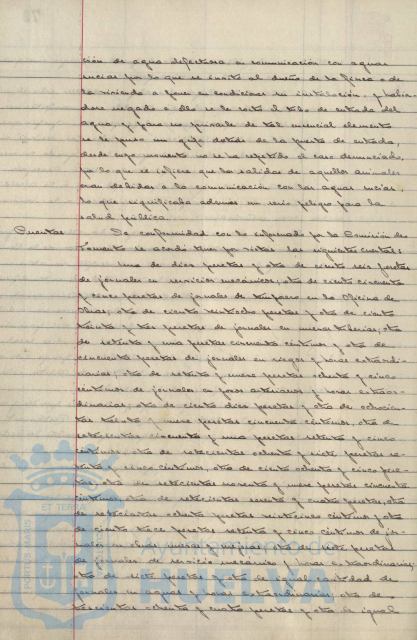 ción de agua defectuosa en comunicación con aguas
sucias por lo que se invitó al dueño de la finca o de
la vivienda a poner en condiciones su instalación, y habién-
dose negado a ello se le cortó el tubo de entrada del
agua, y para no privarle de tal esencial elemento
se le puso un grifo detrás de la puerta de entrada,
desde cuyo momento no se ha repetido el caso denunciado,
por lo que se infiere que las salidas de aquellos animales
eran debidas a la comunicación con las aguas sucias,
lo que significaba además un serio peligro para la
salud pública.
Cuentas De conformidad con lo informado por la Comisión de
Fomento se acordó por vistas las siguientes cuentas:
Una de diez pesetas y otra de ciento seis pesetas
de jornales en servicios mecánicos; otra de ciento cincuenta
y cinco pesetas de jornales de temporero en la Oficina de
Obras; otra de ciento veintiocho pesetas y otra de ciento
treinta y tres pesetas de jornales en; otra
de setenta y una pesetas cincuenta céntimos y otra de
cincuenta pesetas de jornales en riegos y horas extraordi-
narias; otra de setenta y nueve pesetas ochenta y cinco
céntimos de jornales en pozos artesianos y horas extraor-
dinarias; otra de ciento diez pesetas y otra de ochocien-
tas treinta y nueve pesetas cincuenta céntimos; otra de
setecientas cincuenta y una pesetas setenta y cinco
céntimos; otra de setecientas ochenta y siete pesetas
y cinco céntimos; otra de ciento ochenta y cinco pese-
tas; otra de setecientas noventa y nueve pesetas cincuenta
céntimos; otra de setecientas y cuatro pesetas; otra
de setecientas ochenta pesetas veinticinco céntimos y otra
de ciento trece pesetas setenta y cinco céntimos de jor-
nales en obras nuevas y mejoras; otra de siete pesetas
de jornales de servicio mecánico y horas extraordinarias;
otra de siete pesetas y otra de igual cantidad de
jornales en aguas y horas extraordinarias; otra de
trescientas ochenta y cuatro pesetas y otra de igual
Ayuntamiento de